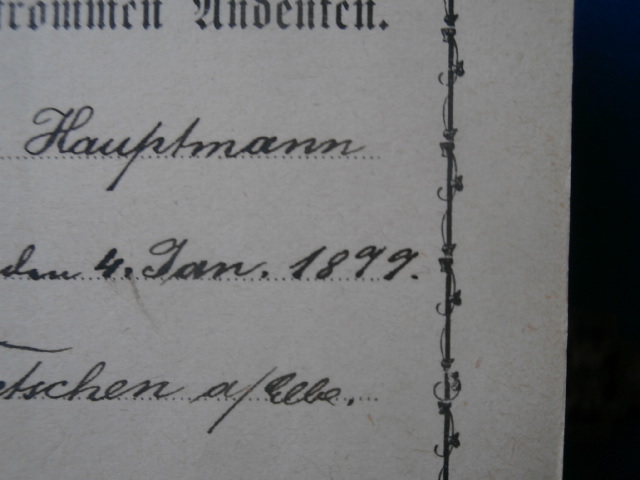 frommen Andenken.
Hauptmann
den 4. Jan. 1899.
etschen a/Elbe.